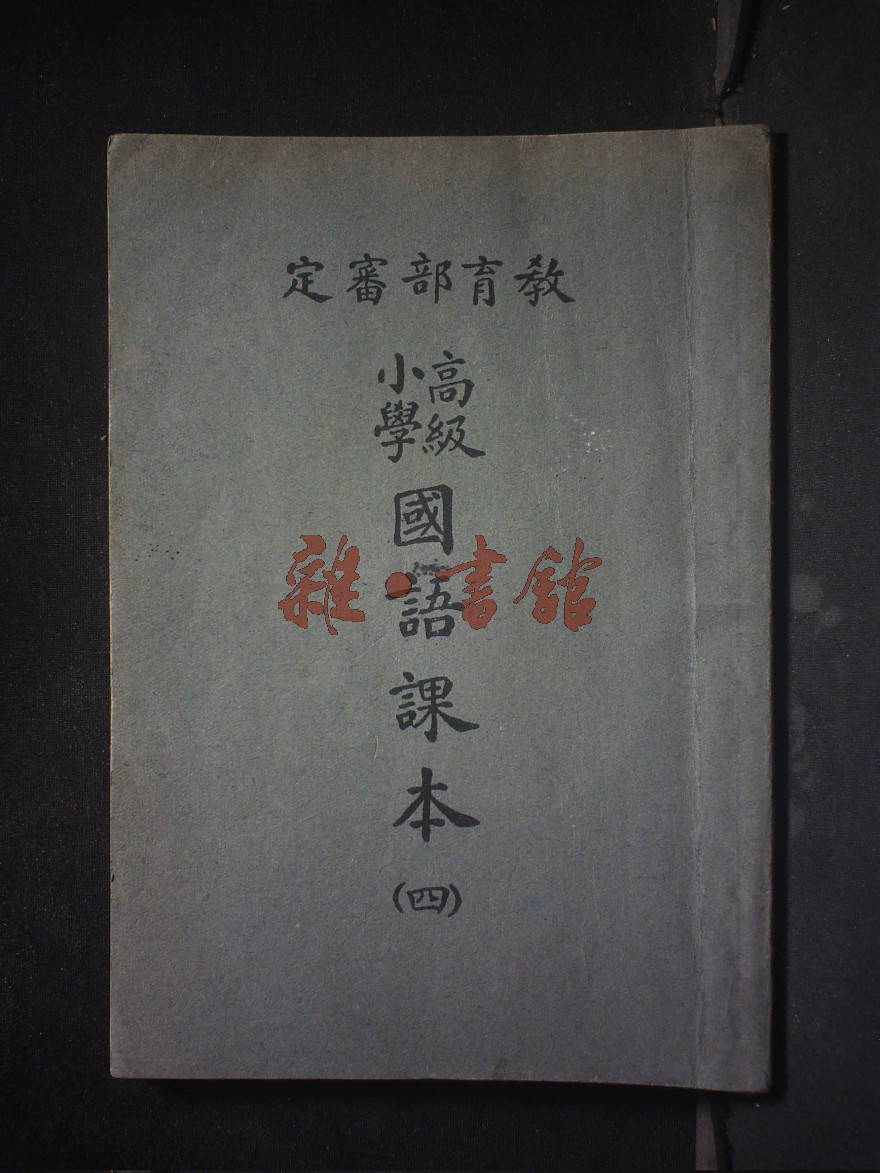 教育部審定
高級
小學
國語課本
(四)
雜·書館